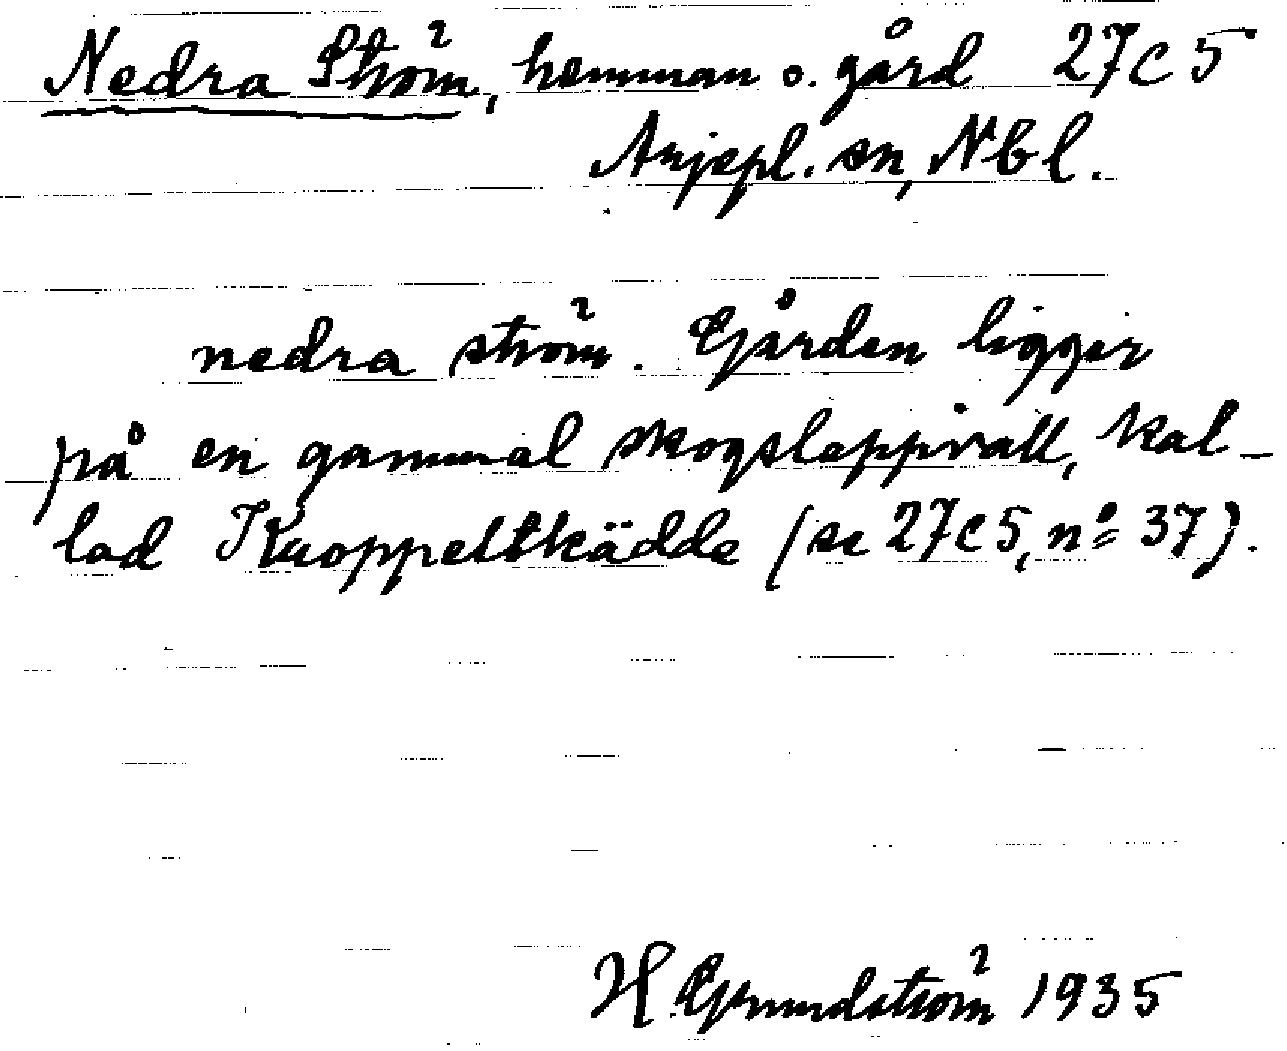 Nedra Ström, hemman o. gård 27C5
Arjepl. sn, Nbl.
nedra ström. Gården ligger
på en gammal skogslappvall, kal-
lad Kuoppeltkädde (se 27C5, nº 37).
H. Grundström 1935